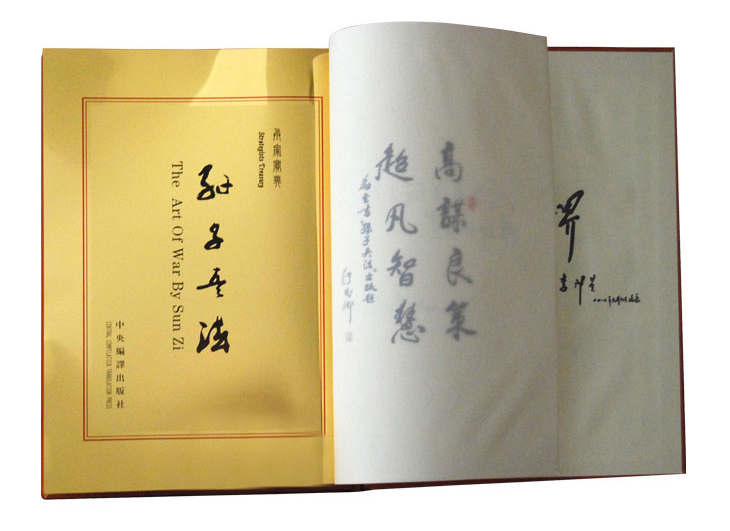 兵家寶典
Strategists Treasury
孫子兵法
The Art Of War By Sun Zi
中央編譯出版社
CENTRAL COMPILATION TRANSLATION PRESS
高謀良策
超凡智慧
為金書孫子兵法出版題
界